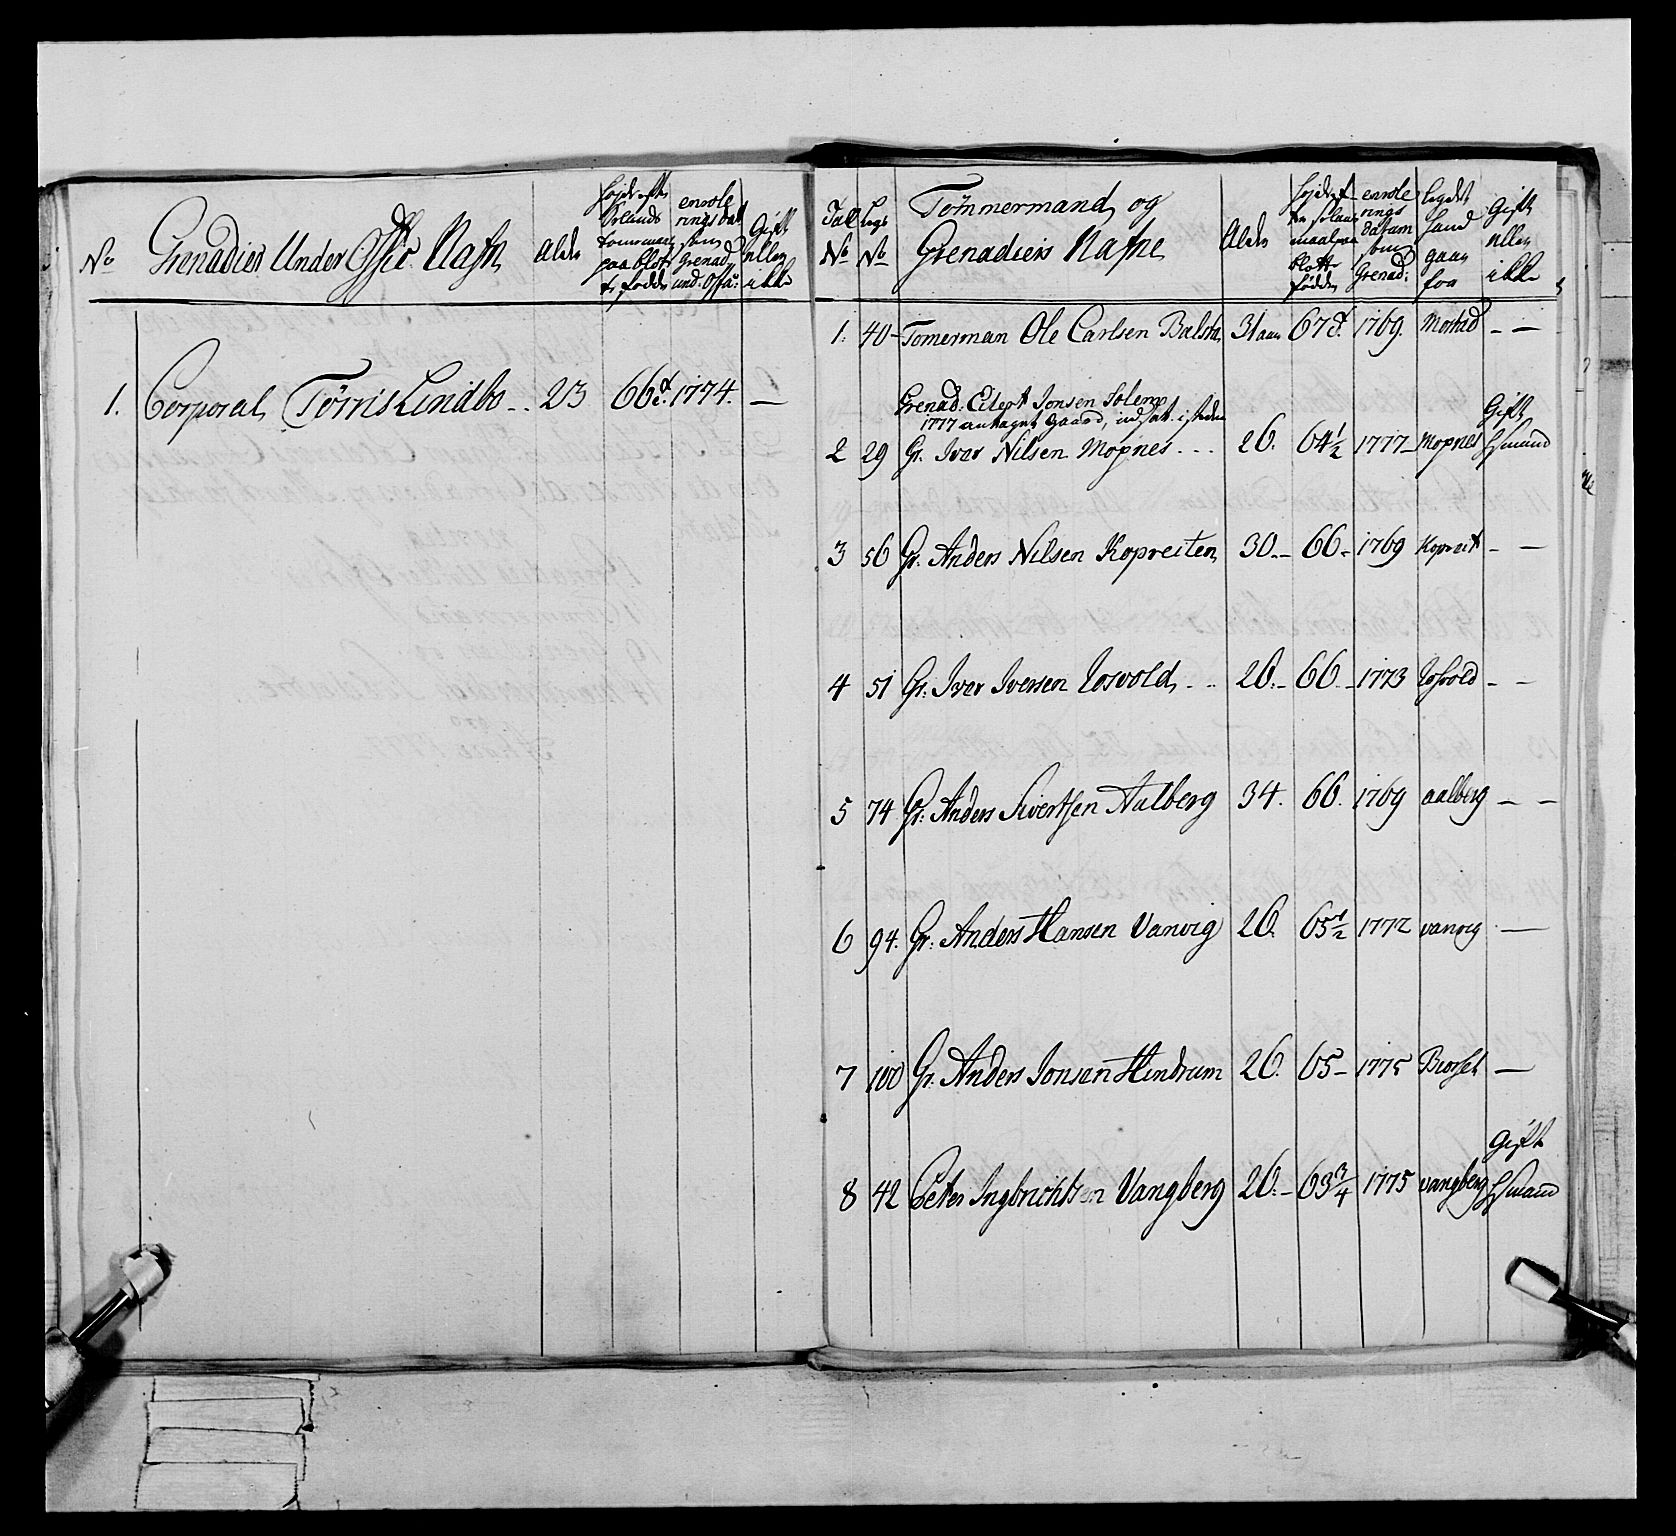 No Grenadier Under Offic: Nafn Alder Højde efter Sællands tommemaal paa blotte fødder enrolerings dat som Grenad und: Offic: Gift eller ikke
1. Corporal Törris Lindbo .. 23 66 d. 1774. —
Tall No Legs No Tömmermand og Grenadeers Nafne Alder Højde maal paa blotte fødder enrolerings datum som Grenad: legdet hand gaar for Gift eller ikke
1. 40 Tomerman Ole Carlsen Balstad 31 aar 67 d. 1769. Mostad — —
Grenad: Eilert Jonsen Solem
1777 antaget Gaard, indsat isteden Gift
2 29 Gr. Iver Nilsen Mopnes ... 26. 64 1/2 1777 Mopnes Hsmand
3 56 Gr. Anders Nilsen Kopreiten 30.- 66- 1769 Kopreit - —
4 51 Gr: Iver Iversen Losvold .. 26.- 66.- 1773 Losvold - -
5 74 Gr: Anders Sivertsen Aalberg 34. 66. 1769 aalberg — —
6 94. Gr: Anders Hansen Vanvig 26. 65 1/2 1772 vanvig —
7 100 Gr. Anders Jonsen Hindrum 26. 65- 1775 Biorset —
Gift
8 42 Peter Ingbrichtsen Vangberg 26.- 63 3/4 1775 vangberg Hsmand